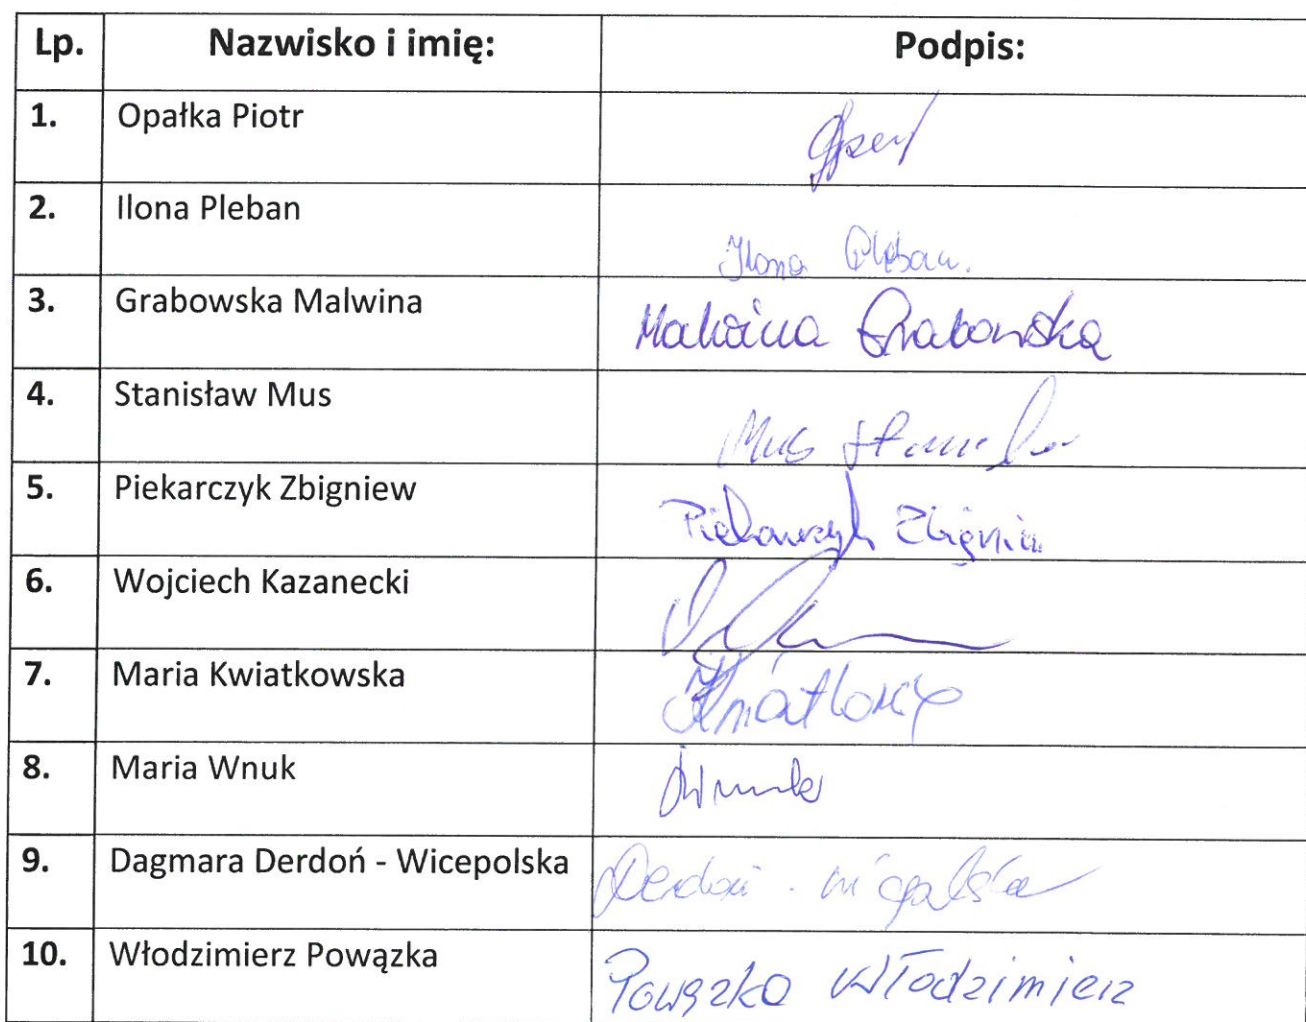 Lp. Nazwisko i imię: Podpis:
1. Opałka Piotr
2. Ilona Pleban Ilona Pleban.
3. Grabowska Malwina Malwina Grabowska
4. Stanisław Mus Mus
5. Piekarczyk Zbigniew Piekarczyk Zbigniew
6. Wojciech Kazanecki
7. Maria Kwiatkowska
8. Maria Wnuk
9. Dagmara Derdoń - Wicepolska Derdoń -
10. Włodzimierz Powązka Powązka Włodzimierz